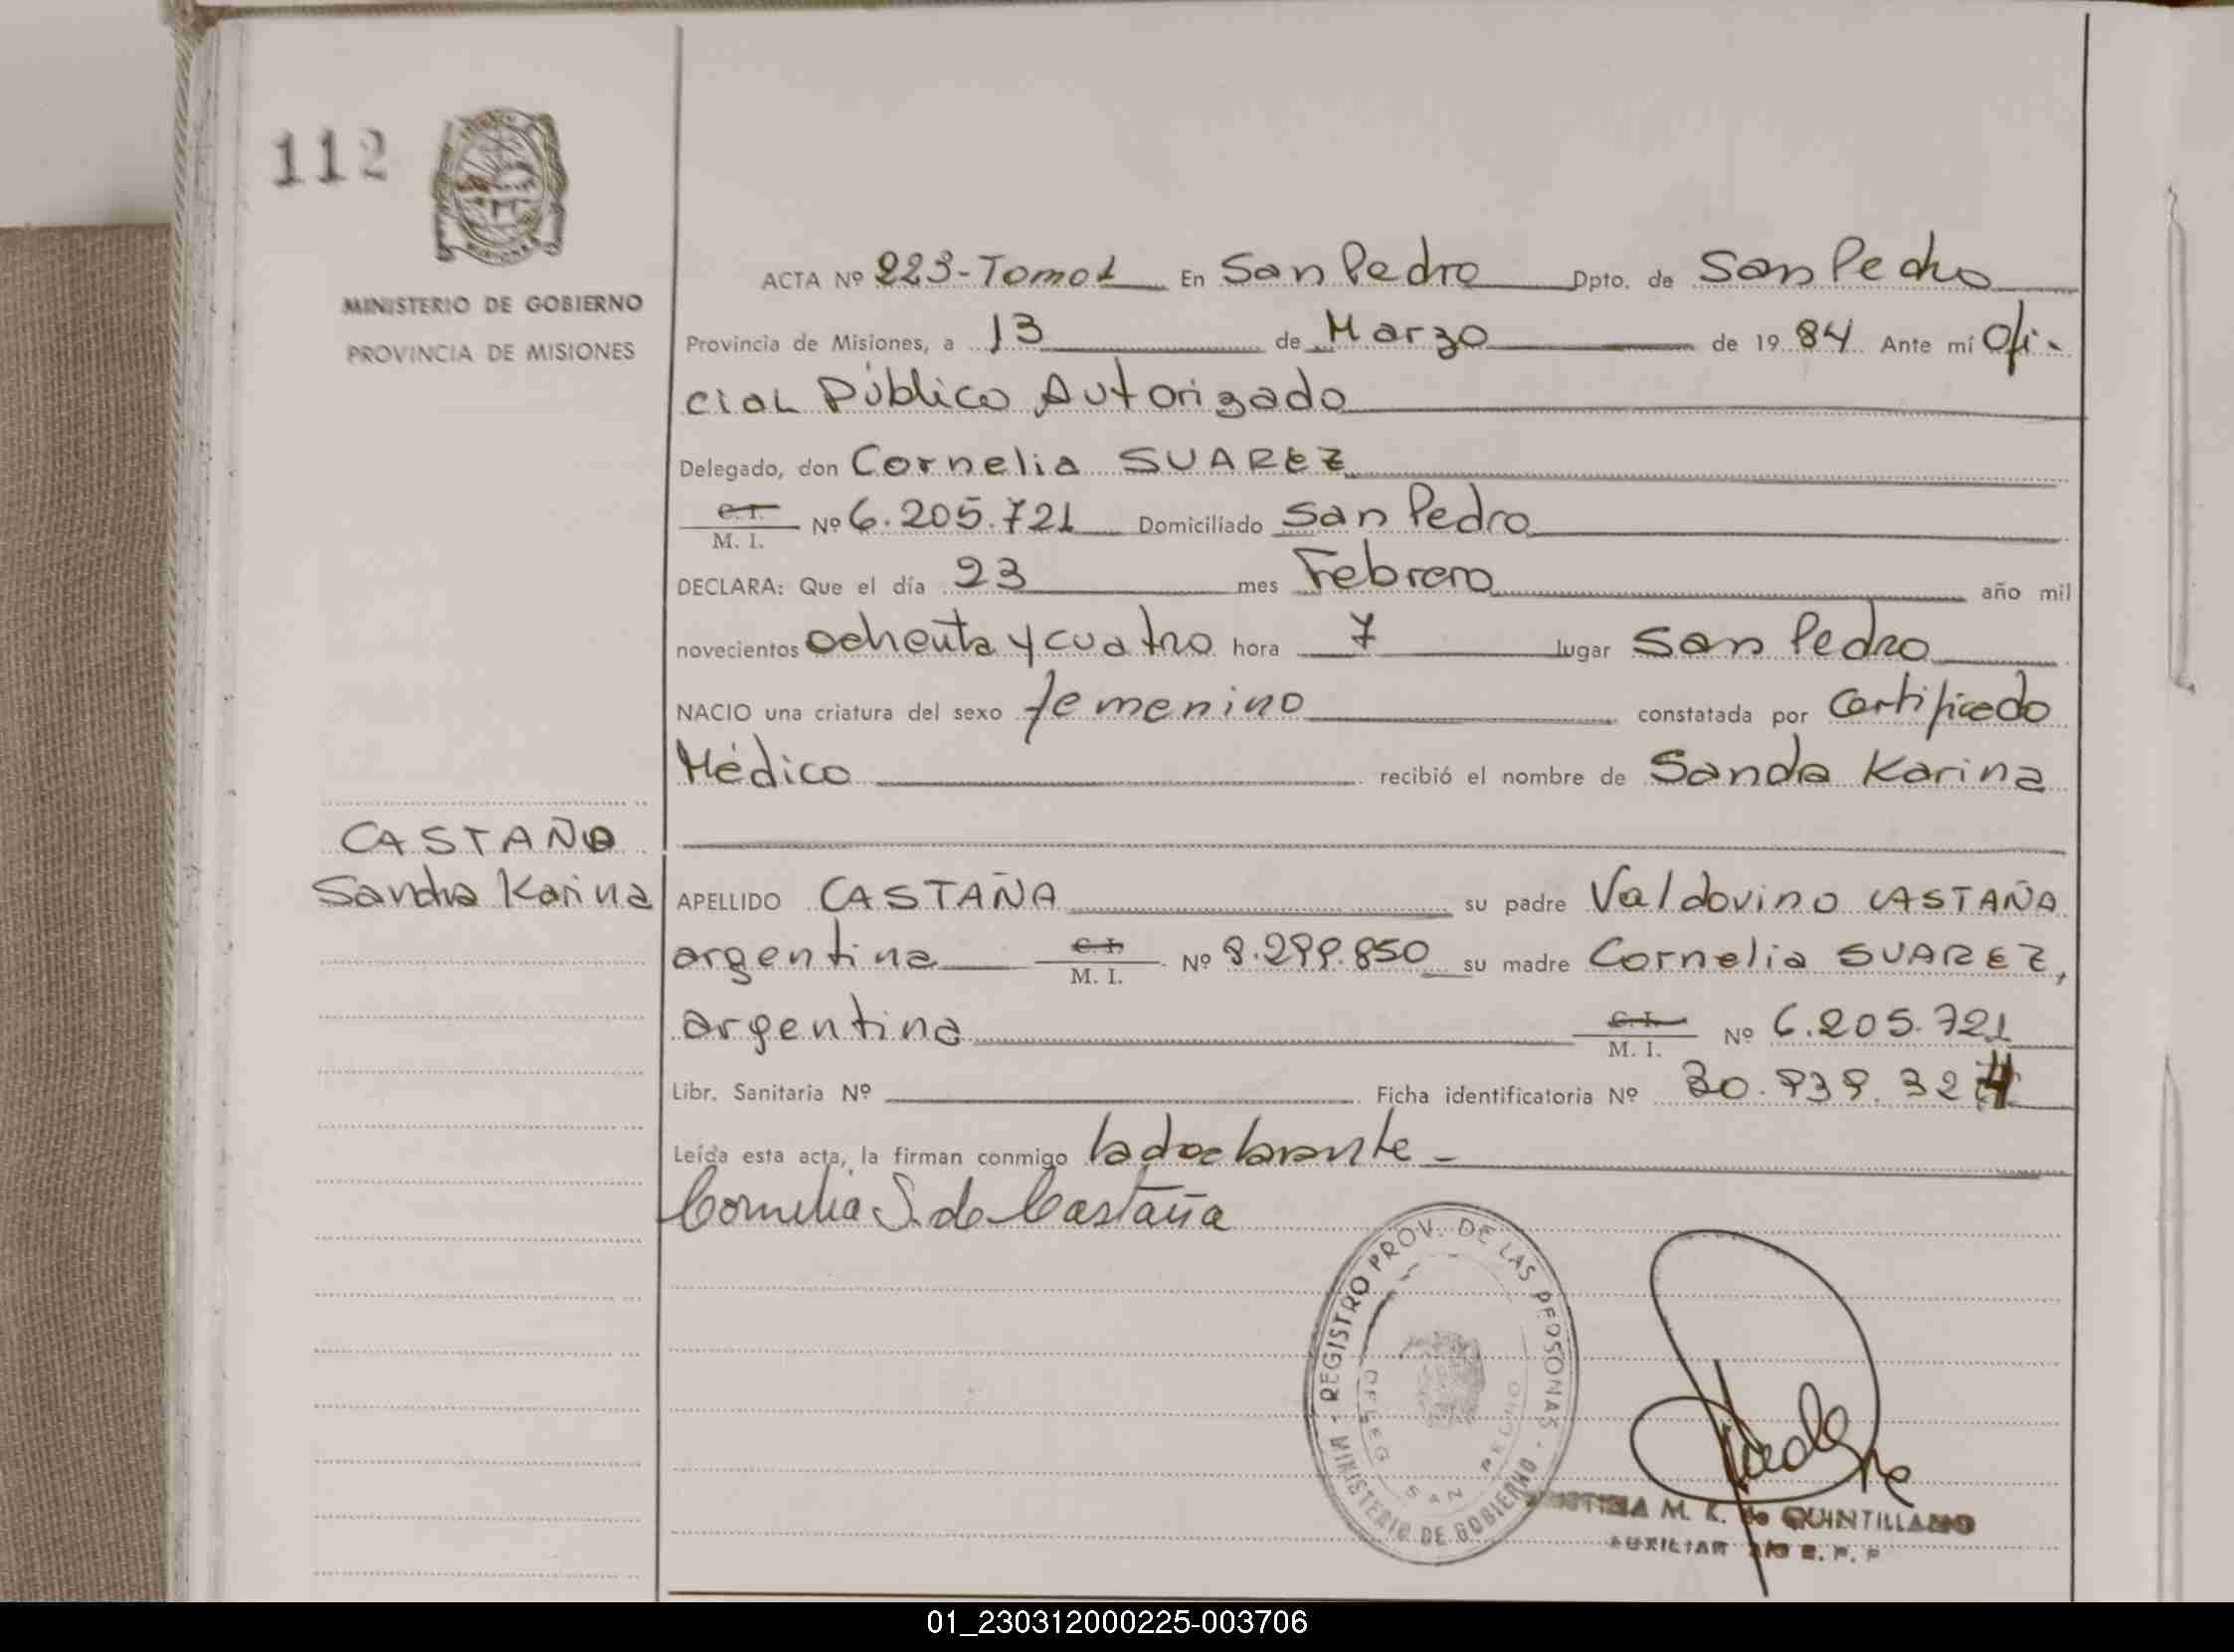 112
MINISTERIO DE GOBIERNO
PROVINCIA DE MISIONES
ACTA Nº 223-Tomo1 En San Pedro Dpto. de San Pedro
Provincia de Misiones, a 13 de Marzo de 1984 Ante mí Ofi-
cial Público Autorizado
Delegado, don Cornelia SUAREZ
C.I.
M. I. Nº 6.205.721 Domiciliado San Pedro
DECLARA: Que el día 23 mes Febrero año mil
novecientos ochenta y cuatro hora 7 lugar San Pedro
NACIO una criatura del sexo femenino constatada por Certificado
Médico recibió el nombre de Sanda Karina
CASTAÑO
Sandra Karina
APELLIDO CASTAÑA su padre Valdovino CASTAÑA
argentina C.I. M. I. Nº 8.299.850 su madre Cornelia SUAREZ,
argentina C.I. M. I. Nº 6.205.721
Libr. Sanitaria Nº Ficha identificatoria Nº 30.939.324
Leída esta acta, la firman conmigo la declarante-
Cornelia S. de Castaña
REGISTRO PROV. DE LAS PERSONAS - MINISTERIO DE GOBIERNO -
DELEG SAN PEDRO
M. K. de QUINTILLANO
AUXILIAR
01_230312000225-003706